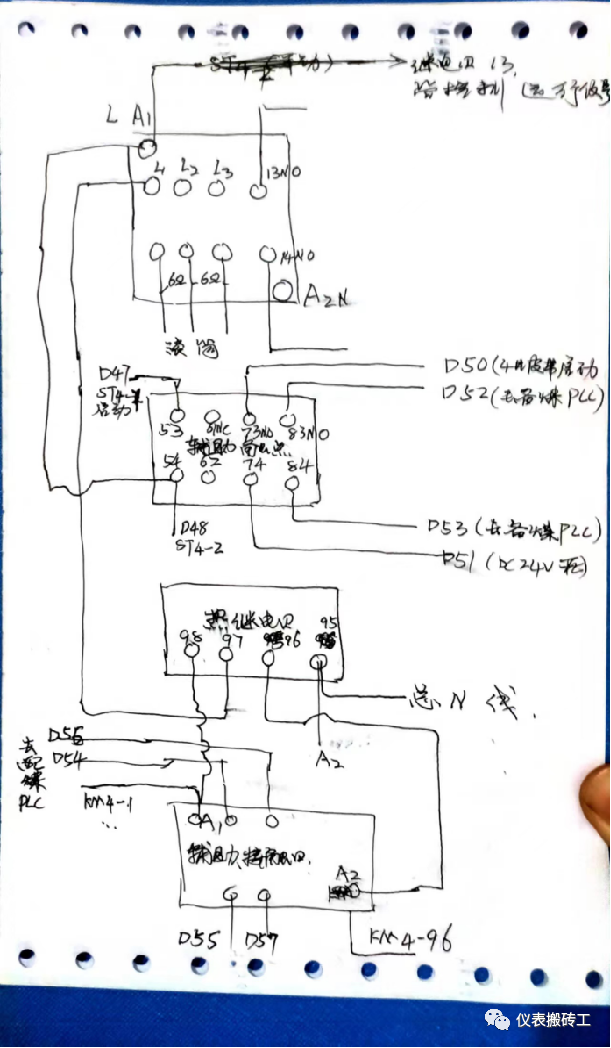 ST4-2(手动) 继电口 13,
L A1
L1 L2 L3 13NO
14NO
6Ω 6Ω
A2N
D47
ST4-1
启动
D50(4#皮带启动
D52(去备煤PLC)
53 61NC 73NO 83NO
辅助
54 62 74 84
D48
ST4-2
D53(去备煤PLC)
D51(DC24V
热继电口 95
98 97 96
总N线.
A2
D55
D54
去配煤PLC
KM4-1
...
A1
辅助
A2
D55 D57
KM4-96
仪表搬砖工